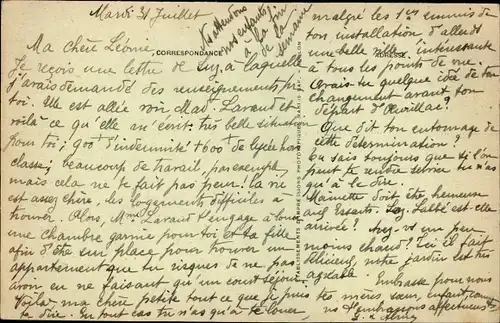 Mardi 31 Juillet
N'attendons
nos enfants
à la fin
de la
semaine
Ma chère Léonie,
CORRESPONDANCE
Je reçois une lettre de Suz à laquelle
j'avais demandé des renseignements pr
toi. Elle est allée voir Mad. Lavaud et
voilà ce qu'elle m'écrit. très belle situation
pour toi; 900 d'indemnité + 600 de lycée hors
classe; beaucoup de travail, par exemple,
mais cela ne te fait pas peur. la vie
est assez chère, les logements difficiles à
trouver. Alors, Mme Lavaud t'engage à louer
une chambre garnie pour toi et ta fille
afin d'être sur place pour trouver un
appartement que tu risques de ne pas
avoir en ne faisant qu'un court séjour.
Voilà ma chère petite tout ce que je puis
te dire. En tout cas tu n'as qu'à te louer
malgré les 1ers ennuis de
ton installation d'aller ds
une belle ville, intéressante
à tous les points de vue.
ADRESSE
Avais-tu quelque idée de ton
changement avant ton
départ d'Auvillar?
Que dit ton entourage de
cette détermination?
Tu sais toujours que si l'on
peut te rendre service tu n'as
qu'à le dire
Mamette doit être heureuse
aux Essarts. est-elle
arrivée? Avez-vs un peu
moins chaud? Ici il fait
délicieux, notre jardin est très
agréable.
Embrasse pour nous
tes mères, sœur, enfant, comme
ns t'embrassons affectueust